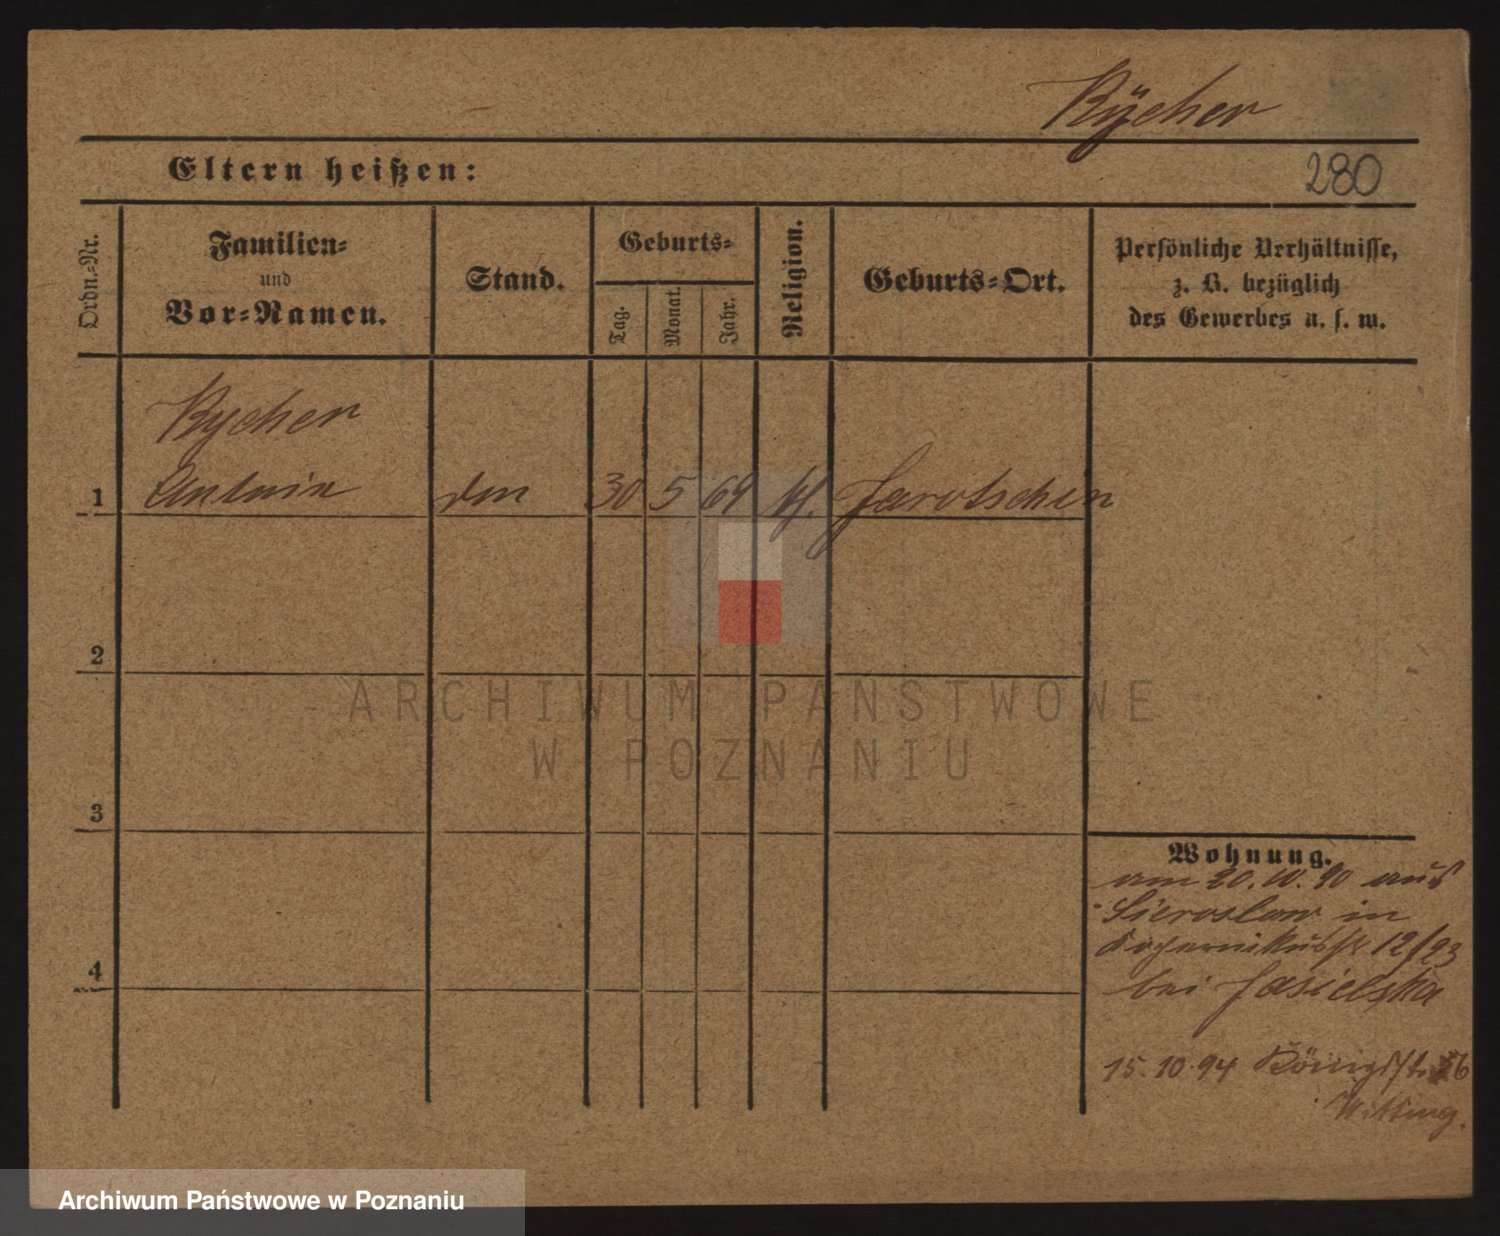 Rÿcher
Eltern heißen:
280
Ordn.-Nr.
Familien-
und
Vor-Namen.
Stand.
Geburts-
Tag.
Monat.
Jahr.
Religion.
Geburts-Ort.
Persönliche Verhältnisse,
z. B. bezüglich
des Gewerbes u. s. w.
Rycher
1 Antonie 30 5 69 Jarotschin
2
ARCHIWUM PAŃSTWOWE
W POZNANIU
3
Wohnung.
am 20. 10. 90 aus
in
12/93
4
bei Jasielska
15. 10. 94 Königstr.
Archiwum Państwowe w Poznaniu